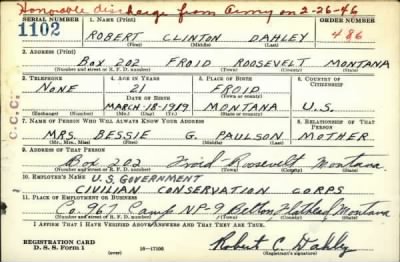 Honorable discharge from Army on 2-26-46
SERIAL NUMBER
1. NAME (Print)
ORDER NUMBER
1102
ROBERT CLINTON DAHLEY
486
(First) (Middle) (Last)
2. ADDRESS (Print)
BOX 202 FROID ROOSEVELT MONTANA
(Number and street or R. F. D. number) (Town) (County) (State)
3. TELEPHONE
4. AGE IN YEARS
5. PLACE OF BIRTH
6. COUNTRY OF CITIZENSHIP
NONE
21
FROID
DATE OF BIRTH
(Town or county)
MARCH-18-1919
MONTANA
U.S.
(Exchange) (Number)
(Mo.) (Day) (Yr.)
(State or country)
7. NAME OF PERSON WHO WILL ALWAYS KNOW YOUR ADDRESS
8. RELATIONSHIP OF THAT PERSON
MRS. BESSIE G. PAULSON
MOTHER
(Mr., Mrs., Miss) (First) (Middle) (Last)
9. ADDRESS OF THAT PERSON
Box 202 Froid Roosevelt Montana
(Number and street or R. F. D. number) (Town) (County) (State)
10. EMPLOYER'S NAME
U.S. GOVERNMENT
CIVILIAN CONSERVATION CORPS
11. PLACE OF EMPLOYMENT OR BUSINESS
Co. 967 Camp NP-9 Belton, Flathead, Montana
(Number and street or R. F. D. number) (Town) (County) (State)
I AFFIRM THAT I HAVE VERIFIED ABOVE ANSWERS AND THAT THEY ARE TRUE.
REGISTRATION CARD
D. S. S. Form 1
(over)
16-17105
Robert C. Dahley
(Registrant's signature)
C.C.C.